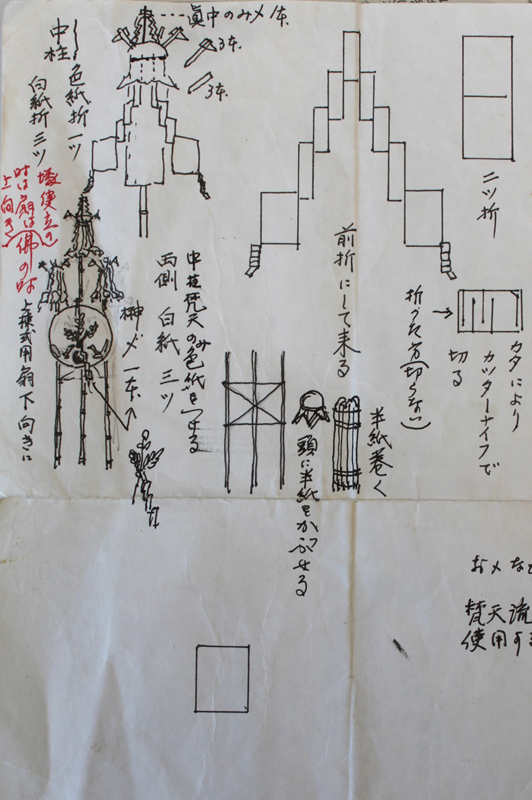 真中のみ〆一本
3本
3本
中柱
色紙折一ツ
白紙折三ツ
二ツ折
前折にして来る
カタにより
カッターナイフで
切る
→
折った方(切らない)
中柱梵天のみ
色紙をつける
両側 白紙 三ツ
榊〆一本
上棟式用扇下向きに
半紙巻く
頭に半紙をかぶせる
お〆など
梵天流
使用す